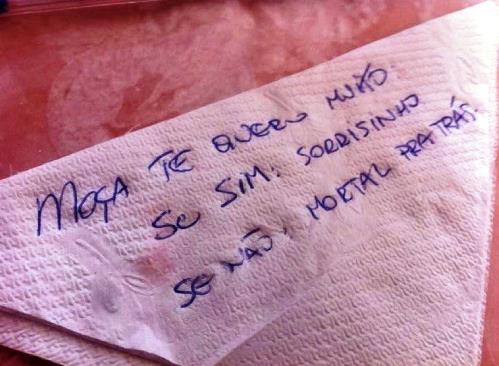 MOÇA TE QUERO MUITO.
SE SIM: SORRISINHO
SE NÃO, MORTAL PRA TRÁS.